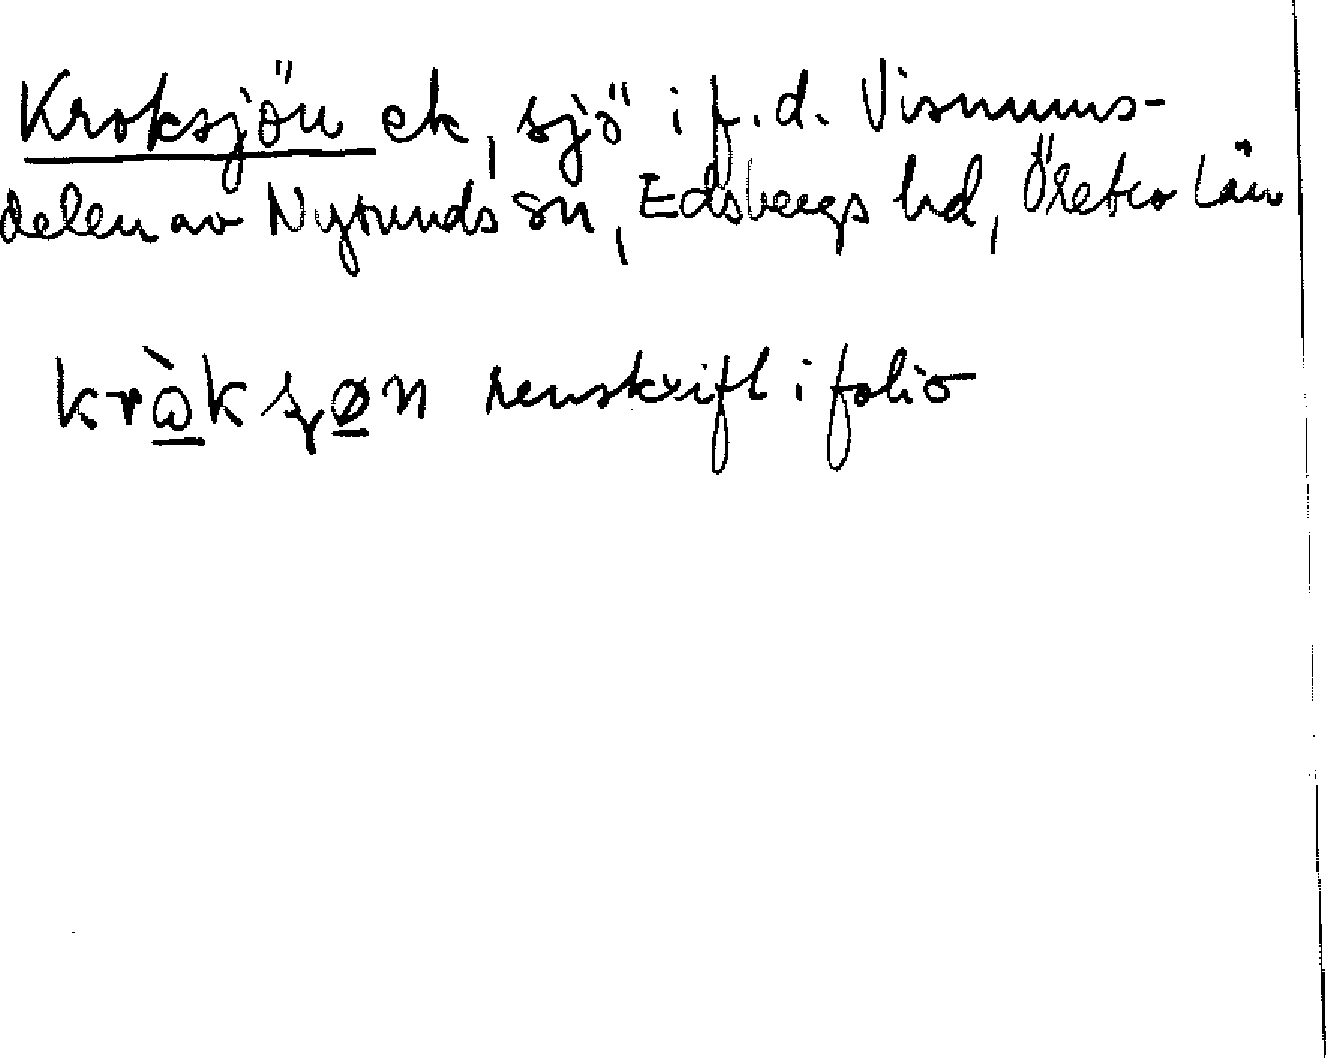 Kroksjön ek, sjö i f.d. Visnums-
delen av Nysunds sn, Edsbergs hd, Örebro län
renskrift i folio